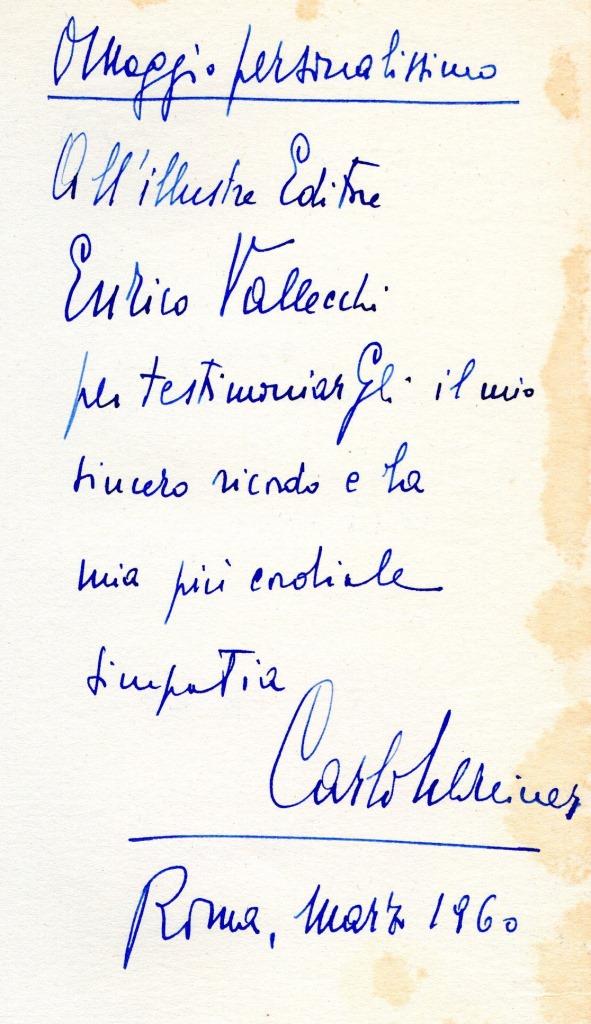 Omaggio personalissimo
All'illustre Editore
Enrico Vallecchi
per testimoniarGli il mio
sincero ricordo e la
mia più cordiale
simpatia
Carlo
Roma, Marzo 1960